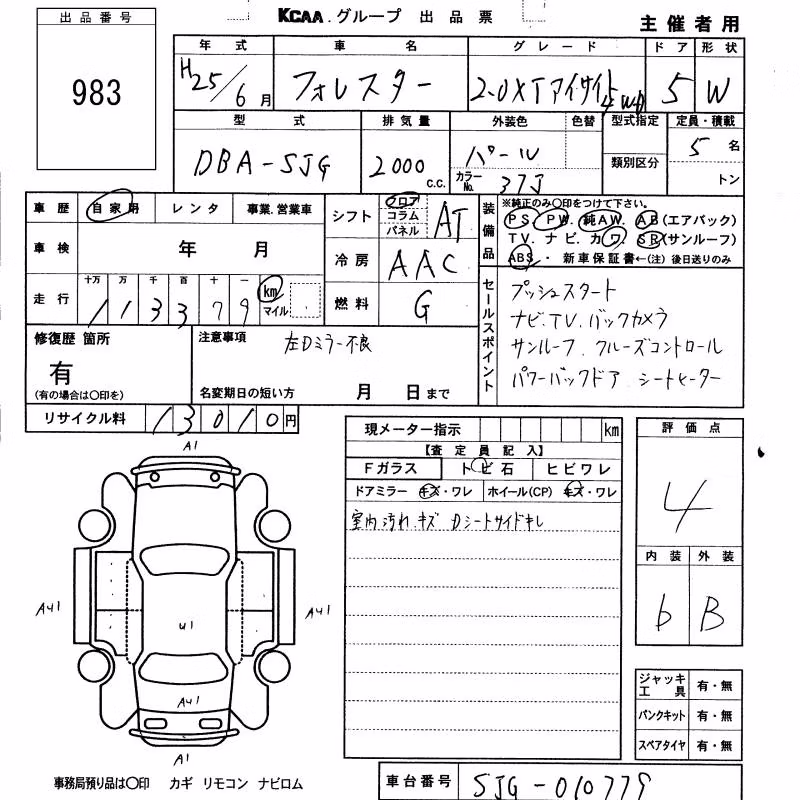 出品番号
983
KCAA.グループ 出品票
主催者用
年式 車名 グレード ドア 形状
H25/6月 フォレスター 2.0XTアイサイト4WD 5 W
型式 排気量 外装色 色替 型式指定 定員・積載
DBA-SJG 2000 C.C. パール 5名
カラーNo. 37J 類別区分 トン
車歴 自家用 レンタ 事業.営業車
車検 年 月
走行 十万 万 千 百 十 一
113379 km マイル
シフト フロア コラム パネル AT
冷房 AAC
燃料 G
装備品 ※純正のみ○印をつけて下さい。
PS. PW. 純AW. AB(エアバック)
TV. ナビ. カワ. SR(サンルーフ)
ABS・新車保証書←(注)後日送りのみ
セールスポイント
プッシュスタート
ナビ.TV.バックカメラ
サンルーフ.クルーズコントロール
パワーバックドア.シートヒーター
修復歴 箇所
有
(有の場合は○印を)
注意事項
左Dミラー不良
名変期日の短い方 月 日まで
リサイクル料 13010円
現メーター指示 km
【査定員記入】
Fガラス トビ石 ヒビワレ
ドアミラー キズ・ワレ ホイール(CP) キズ・ワレ
室内汚れ.キズ Dシートサイドキレ
評価点
4
内装 外装
b B
ジャッキ工具 有・無
パンクキット 有・無
スペアタイヤ 有・無
A1
AU1 U1 AU1
AU1
A1
事務局預り品は○印 カギ リモコン ナビロム
車台番号 SJG-010779